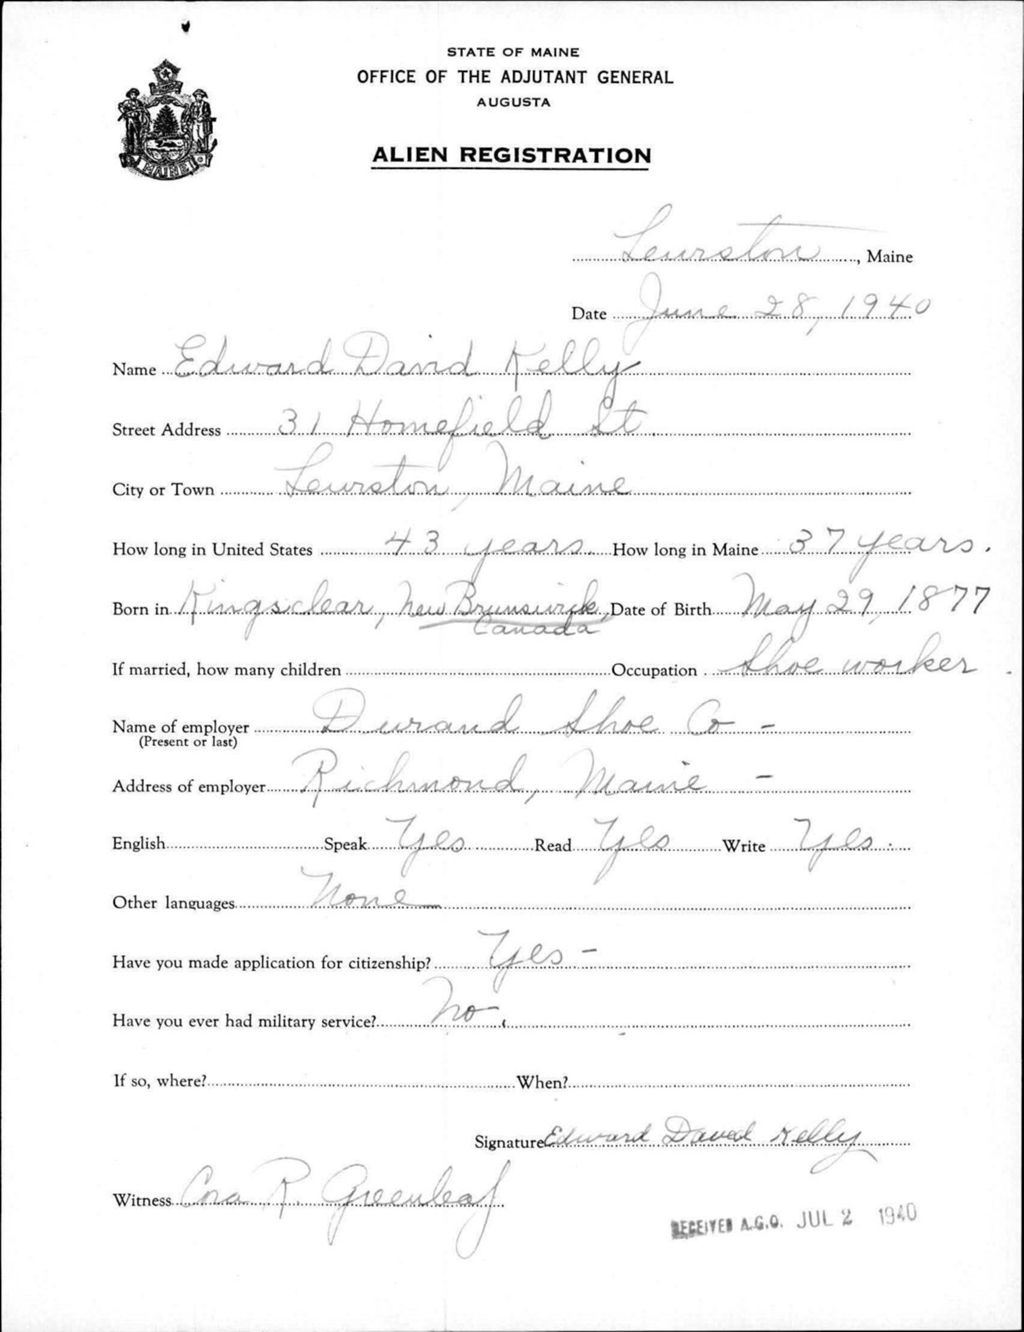 STATE OF MAINE
OFFICE OF THE ADJUTANT GENERAL
AUGUSTA
MAINE
ALIEN REGISTRATION
Lewiston, Maine
Date June 28, 1940
Name Edward David Kelly
Street Address 31 Homefield St.
City or Town Lewiston, Maine
How long in United States 43 years How long in Maine 37 years.
Born in Kingsclear, New Brunswick, Date of Birth May 29, 1877
Canada
If married, how many children Occupation Shoe worker
Name of employer Durand Shoe Co -
(Present or last)
Address of employer Richmond, Maine -
English Speak Yes Read Yes Write Yes.
Other languages None
Have you made application for citizenship? Yes -
Have you ever had military service? No.
If so, where? When?
Signature Edward David Kelly
Witness Cora R. Greenleaf
RECEIVED A.G.O. JUL 2 1940